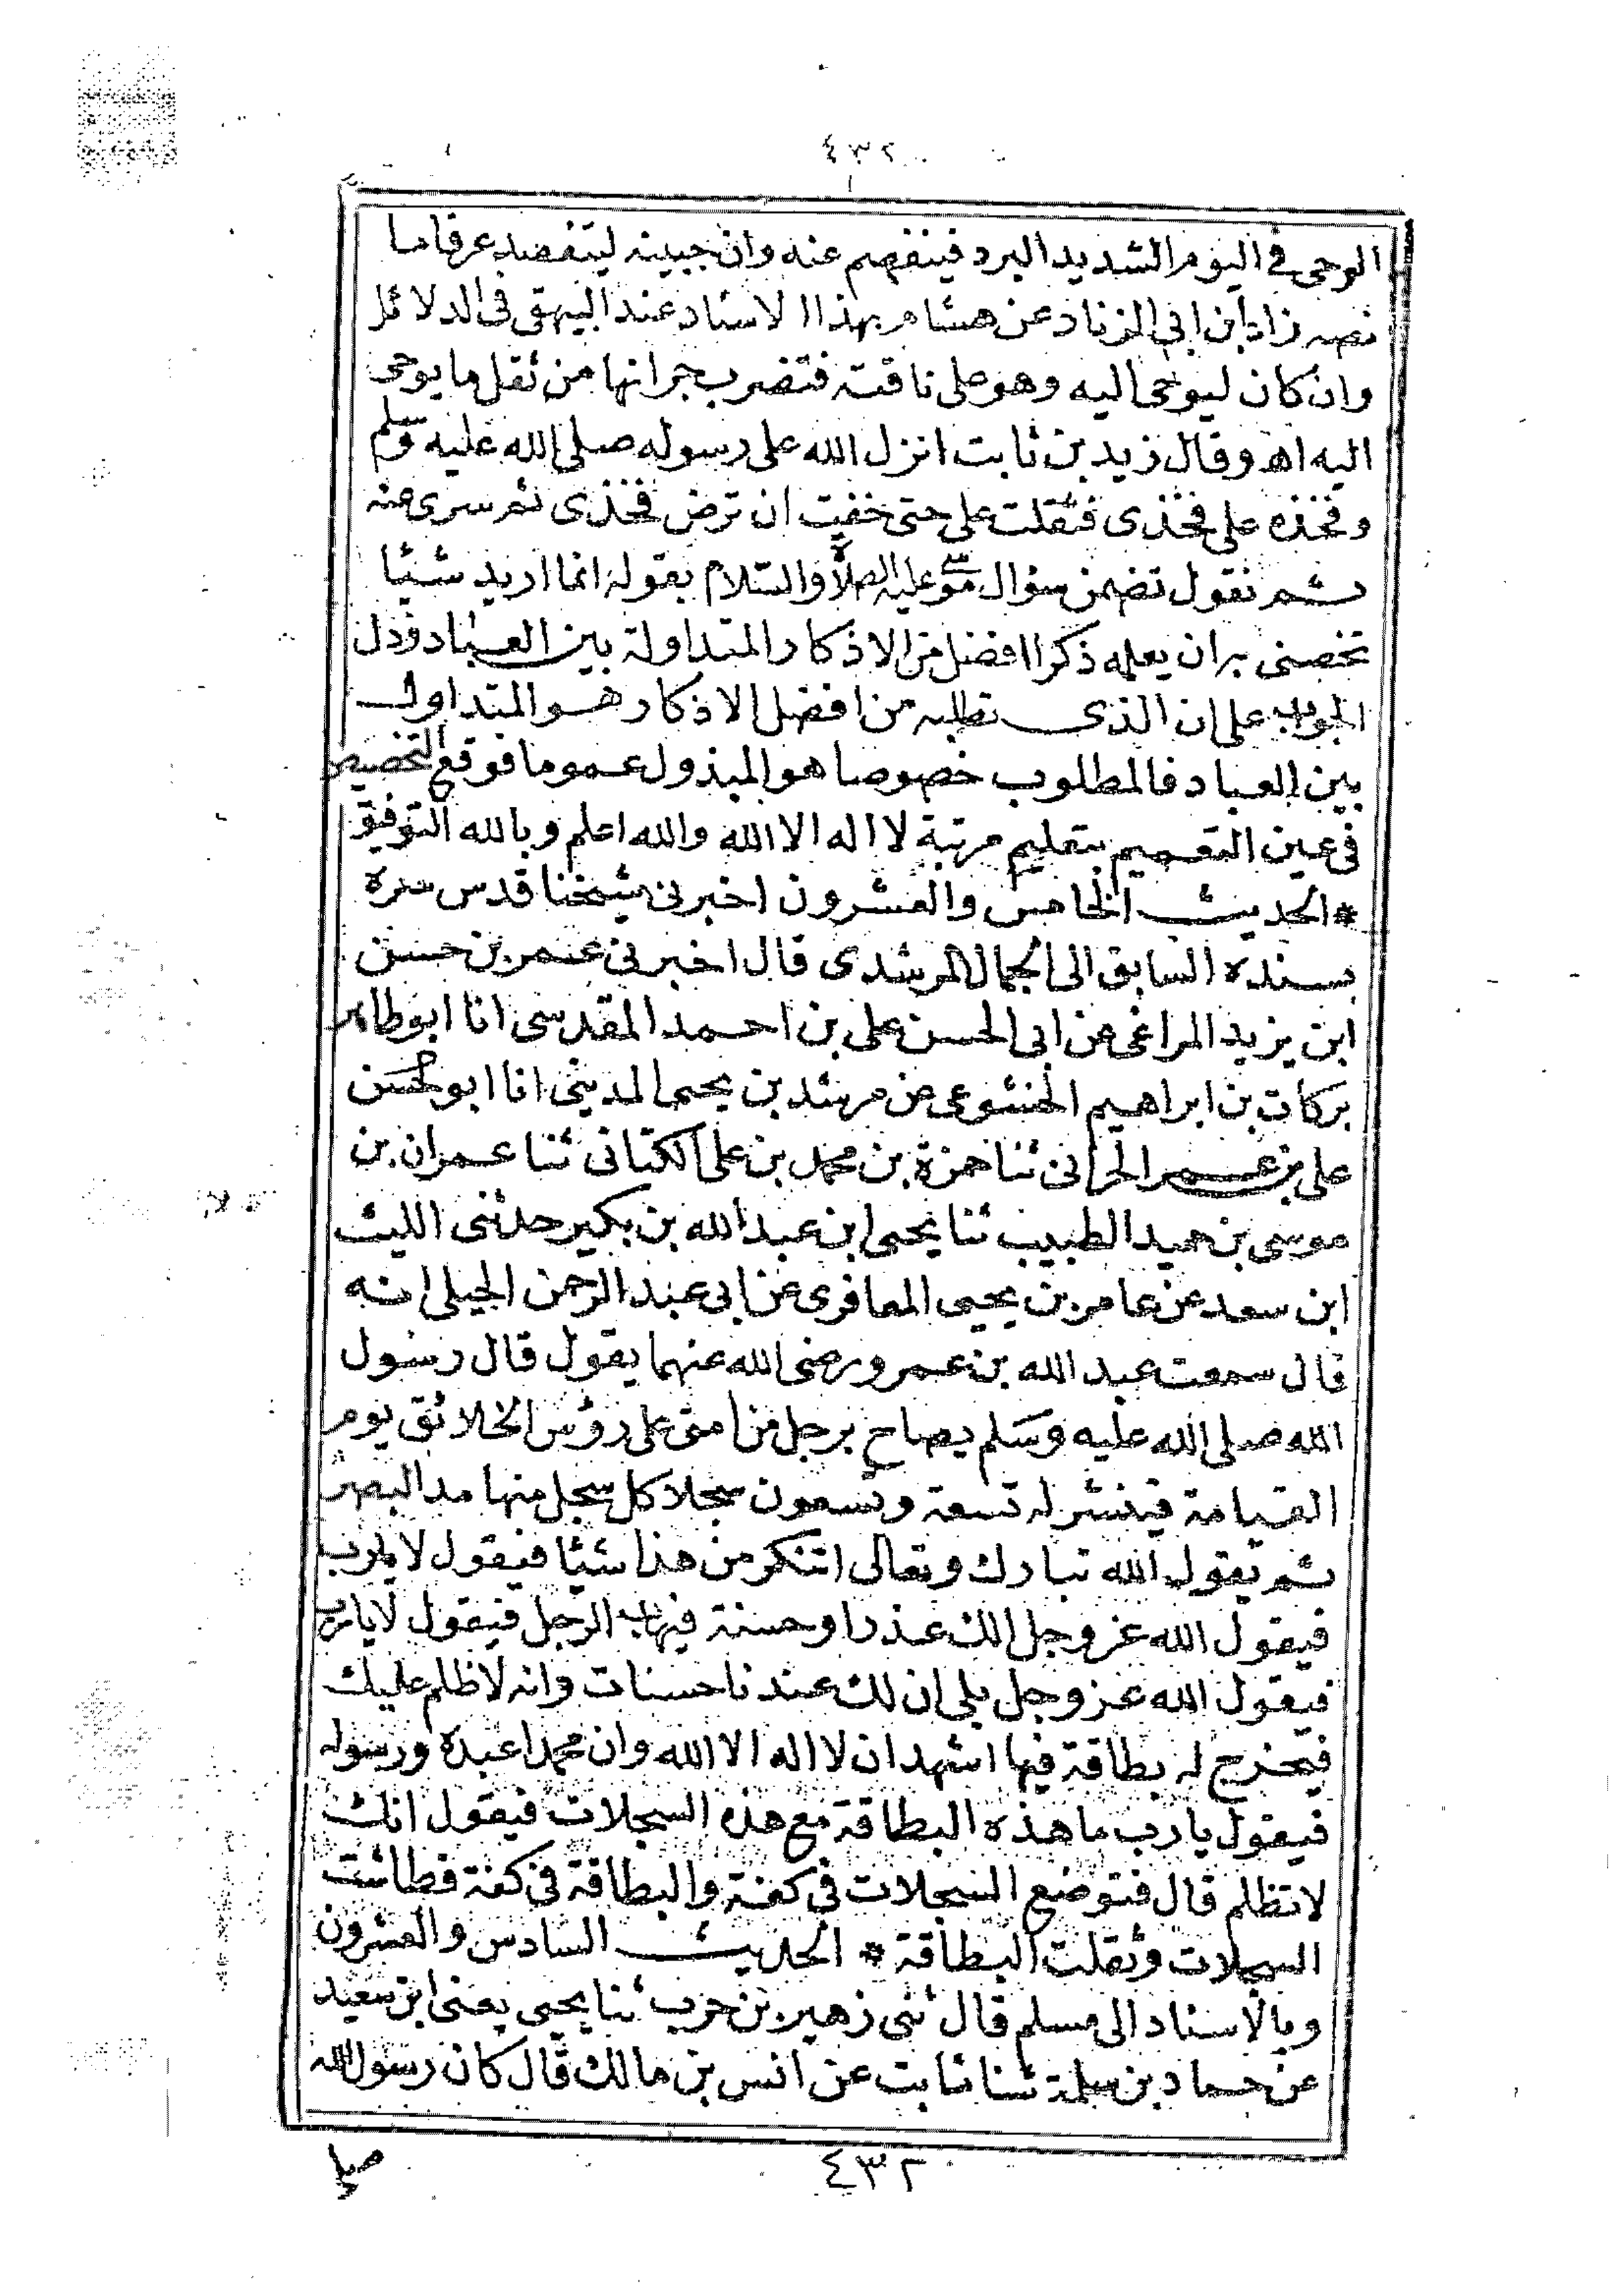 ٤٣٢
الوحى فى اليوم الشديد البرد فينفصم عنه وان جبينه ليتفصد عرقا ما
نصه زاد ابن ابى الزناد عن هشام بهذا الاسناد عند البيهقى فى الدلائل
وان كان ليوحى اليه وهو على ناقته فتضرب جرانها من ثقل ما يوحى
اليه اه وقال زيد بن ثابت انزل الله على رسوله صلى الله عليه وسلم
وفخذه على فخذى فثقلت على حتى خفت ان ترض فخذى ثم سرى عنه
ثم نقول تضمن سؤال موسى عليه الصلاة والسلام بقوله انما اريد شيئا
تخصنى به ان يعلمه ذكرا افضل من الاذكار المتداولة بين العباد فدل
الجواب على ان الذى تطلبه من افضل الاذكار هو المتداول
بين العباد فالمطلوب خصوصا هو المبذول عموما فوقع التخصيص
فى عين التعميم بتعليم مرتبة لا اله الا الله والله اعلم وبالله التوفيق
* الحديث الخامس والعشرون اخبرنى شيخنا قدس سره
بسنده السابق الى الجمال المرشدى قال اخبرنى عمر بن حسن
ابن يزيد المراغى عن ابى الحسن على بن احمد المقدسى انا ابو طاهر
بركات بن ابراهيم الخشوعى عن مرشد بن يحيى المدينى انا ابو الحسن
على بن عمر الحرانى ثنا حمزة بن محمد بن على الكنانى ثنا عمران بن
موسى بن حميد الطبيب ثنا يحيى ابن عبد الله بن بكير حدثنى الليث
ابن سعد عن عامر بن يحيى المعافرى عن ابى عبد الرحمن الجبلى انه
قال سمعت عبد الله بن عمرو رضى الله عنهما يقول قال رسول
الله صلى الله عليه وسلم يصاح برجل من امتى على رؤس الخلائق يوم
القيامة فينشر له تسعة وتسعون سجلا كل سجل منها مد البصر
ثم يقول الله تبارك وتعالى اتنكر من هذا شيئا فيقول لا يا رب
فيقول الله عز وجل الك عذر او حسنة فيهاب الرجل فيقول لا يا رب
فيقول الله عز وجل بلى ان لك عندنا حسنات وانه لا ظلم عليك
فيخرج له بطاقة فيها اشهد ان لا اله الا الله وان محمدا عبده ورسوله
فيقول يا رب ما هذه البطاقة مع هذه السجلات فيقول انك
لا تظلم قال فتوضع السجلات فى كفة والبطاقة فى كفة فطاشت
السجلات وثقلت البطاقة * الحديث السادس والعشرون
وبالاسناد الى مسلم قال ثنى زهير بن حرب ثنا يحيى يعنى ابن سعيد
عن حماد بن سلمة ثنا ثابت عن انس بن مالك قال كان رسول الله
٤٣٢
صلى